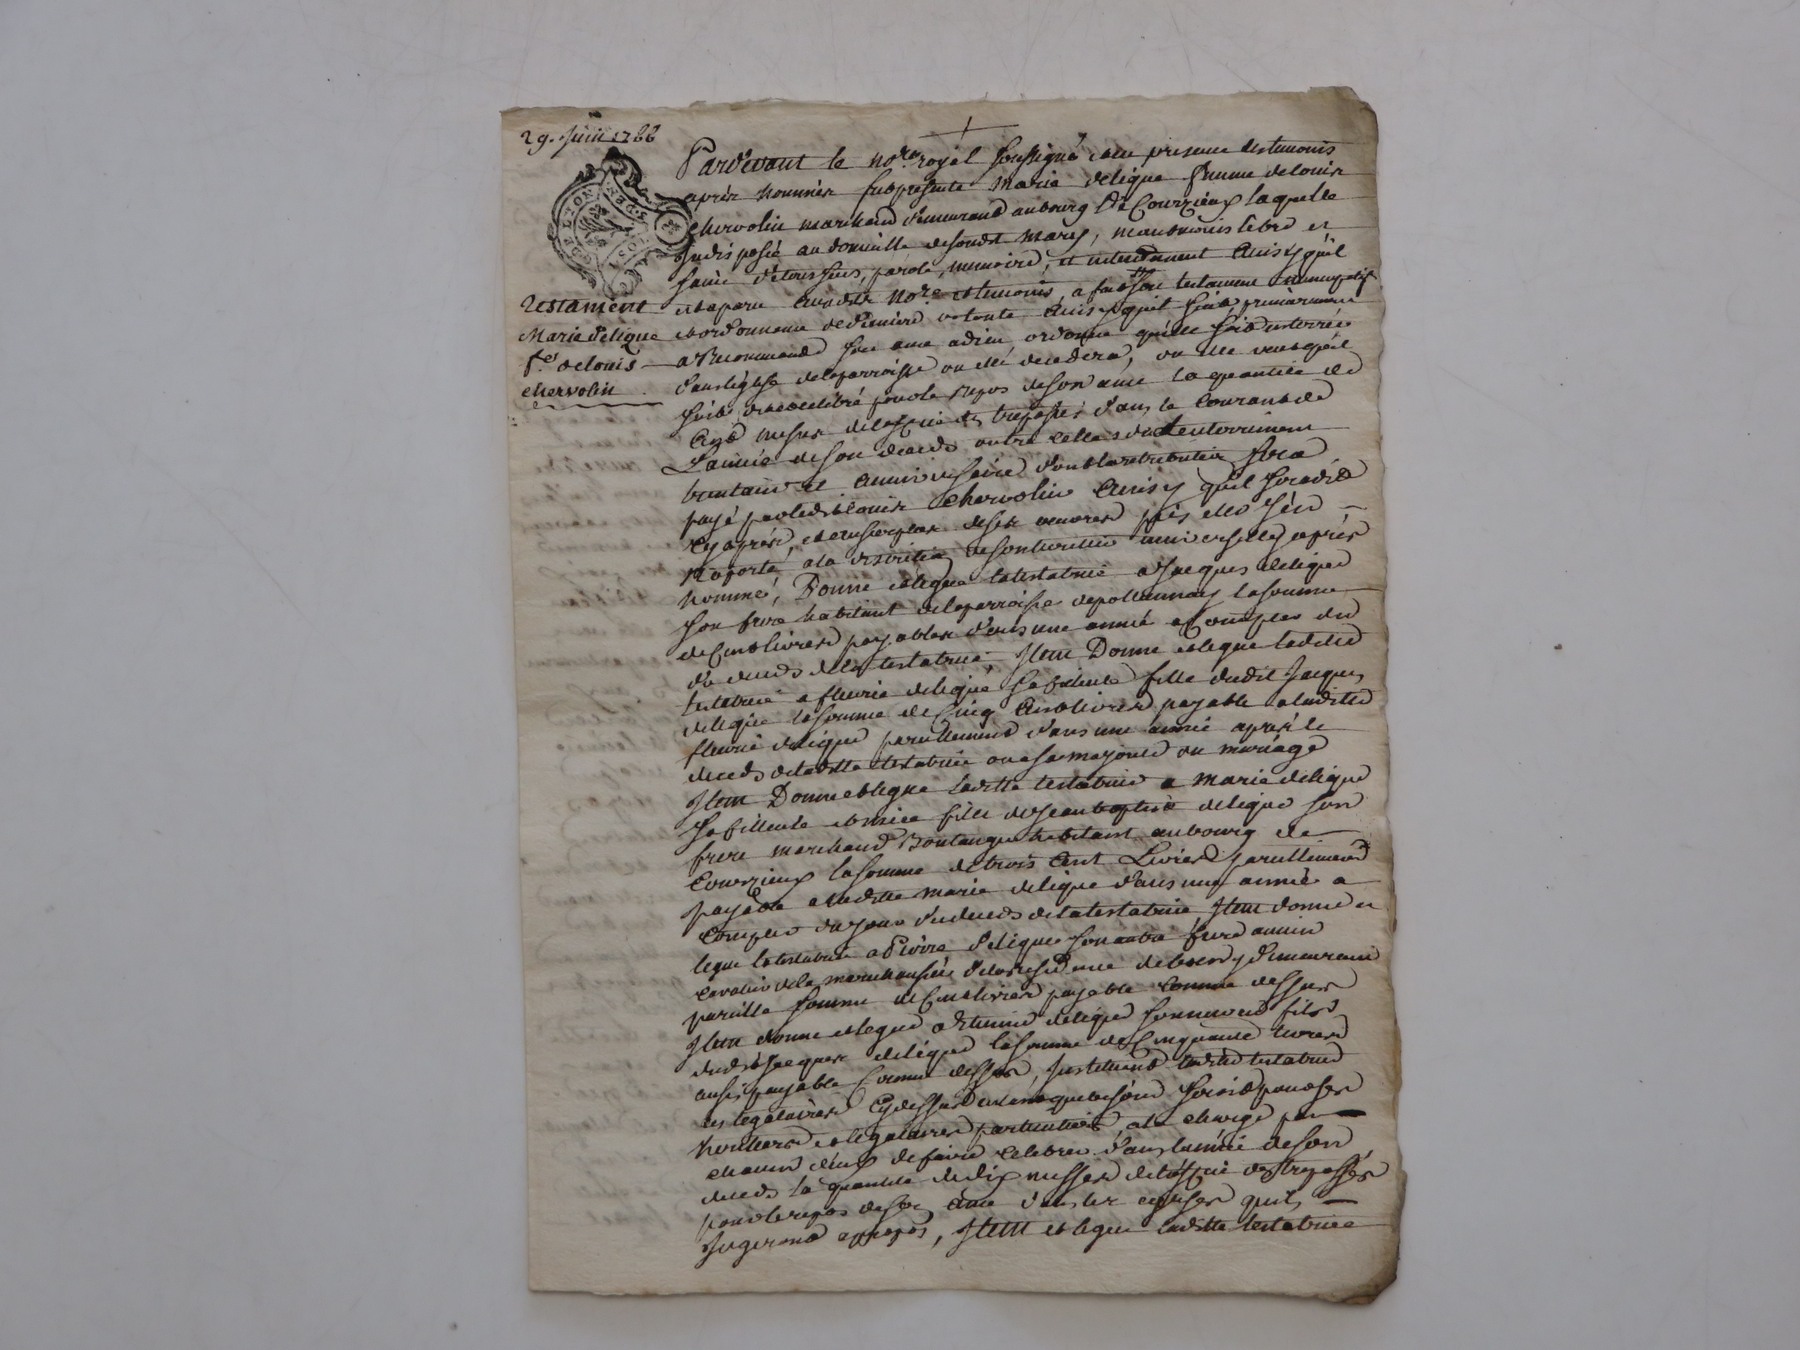 29. Juin 1788
DE LYON
Testament
Marie deligue
f.e de Louis
chervolin
Pardevant le no.re royal soussigné et en presence des temoins
apres nommés fut presente Marie deligue femme de Louis
chervolin marchand demeurant au bourg de Courzieux laquelle
indisposée au domicille de sondit mary, neanmoins libre et
saine de tous sens, parole, memoire, et entendement ainsy qu'il
est aparu audit no.re et temoins, a fait son testament nuncupatif
et ordonnance de derniere volonté ainsy qu'il suit, premierement
a recommandé son ame a dieu, ordonne qu'elle soit enterrée
dans l'eglise de la parroisse ou elle decedera, ou elle veut qu'il
soit dit et celebré pour le repos de son ame la quantité de
cent messes de l'office des trepassés dans le courant de
L'année de son deceds outre celles de enterrement
trentaine et anniversaire dont la retribution sera
payé par ledit Louis chervolin ainsy qu'il sera dit
cy après, et au surplus de ses œuvres pies elle s'en
raporte a la discrétion de son heritier universel cy après
nommé, Donne et legue la testatrice a Jacques deligue
son frere habitant de la parroisse de pollionnay la somme
de cent livres payables dans une année a compter du
deceds de la testatrice, Item Donne et legue ladite
testatrice a fleurie deligue sa filleule fille dudit Jacques
deligue la somme de cinq cent livres payable a ladite
fleurie deligue pareillement dans une année après le
deceds de ladite testatrice ou a sa majorité ou mariage
Item Donne et legue ladite testatrice a Marie deligue
sa filleule et niece fille de Jean baptiste deligue son
frere marchand Boulanger habitant au bourg de
Courzieux la somme de trois cent Livres pareillement
payable a ladite marie deligue dans une année a
compter du jour du deceds de la testatrice Item donne et
legue la testatrice a Pierre deligue son autre frere ancien
cavalier de la marechaussée de la residence de demeurant
pareille somme de cent livres payable comme dessus
Item donne et legue a Etienne deligue son neveu fils
dudit Jacques deligue la somme de Cinquante livres
aussi payable comme dessus, Instituant ladite testatrice
les legataires cy dessus en ce que soient pour ses
heritiers et legataires particuliers, a la charge par
chacun d'eux de faire celebrer dans l'année de son
deceds la quantité de dix messes de l'office des trepassés
pour le repos de son ame dans les eglises qu'ils
jugeront apropos, Item et legue ladite testatrice